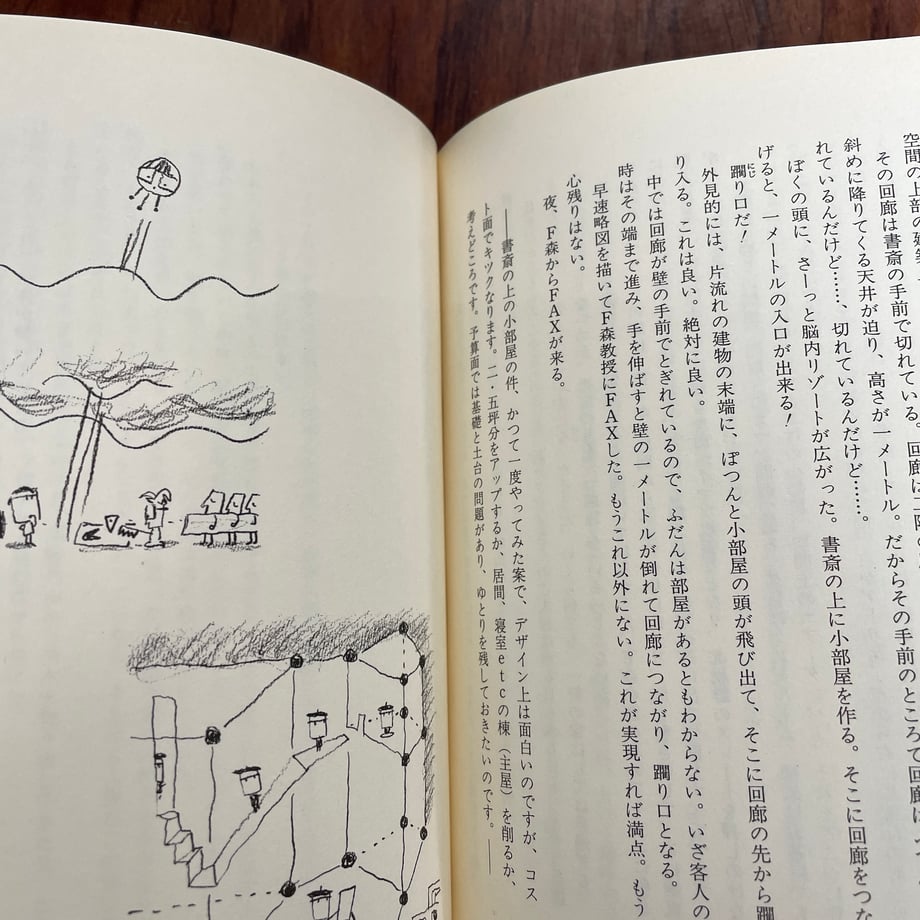 空間の上部の
その回廊は書斎の手前で切れている。回廊は二階の
斜めに降りてくる天井が迫り、高さが一メートル。だからその手前のところで回廊は
れているんだけど……、切れているんだけど……。
ぼくの頭に、さーっと脳内リゾートが広がった。書斎の上に小部屋を作る。そこに回廊をつな
げると、一メートルの入口が出来る！
躙り口だ！
にじ
外見的には、片流れの建物の末端に、ぽつんと小部屋の頭が飛び出て、そこに回廊の先から躙
り入る。これは良い。絶対に良い。
中では回廊が壁の手前でとぎれているので、ふだんは部屋があるともわからない。いざ客人の
時はその端まで進み、手を伸ばすと壁の一メートルが倒れて回廊につながり、躙り口となる。
早速略図を描いてF森教授にFAXした。もうこれ以外にない。これが実現すれば満点。もう
心残りはない。
夜、F森からFAXが来る。
――書斎の上の小部屋の件、かつて一度やってみた案で、デザイン上は面白いのですが、コス
ト面でキツクなります。二・五坪分をアップするか、居間、寝室etcの棟（主屋）を削るか、
考えどころです。予算面では基礎と土台の問題があり、ゆとりを残しておきたいのです。――